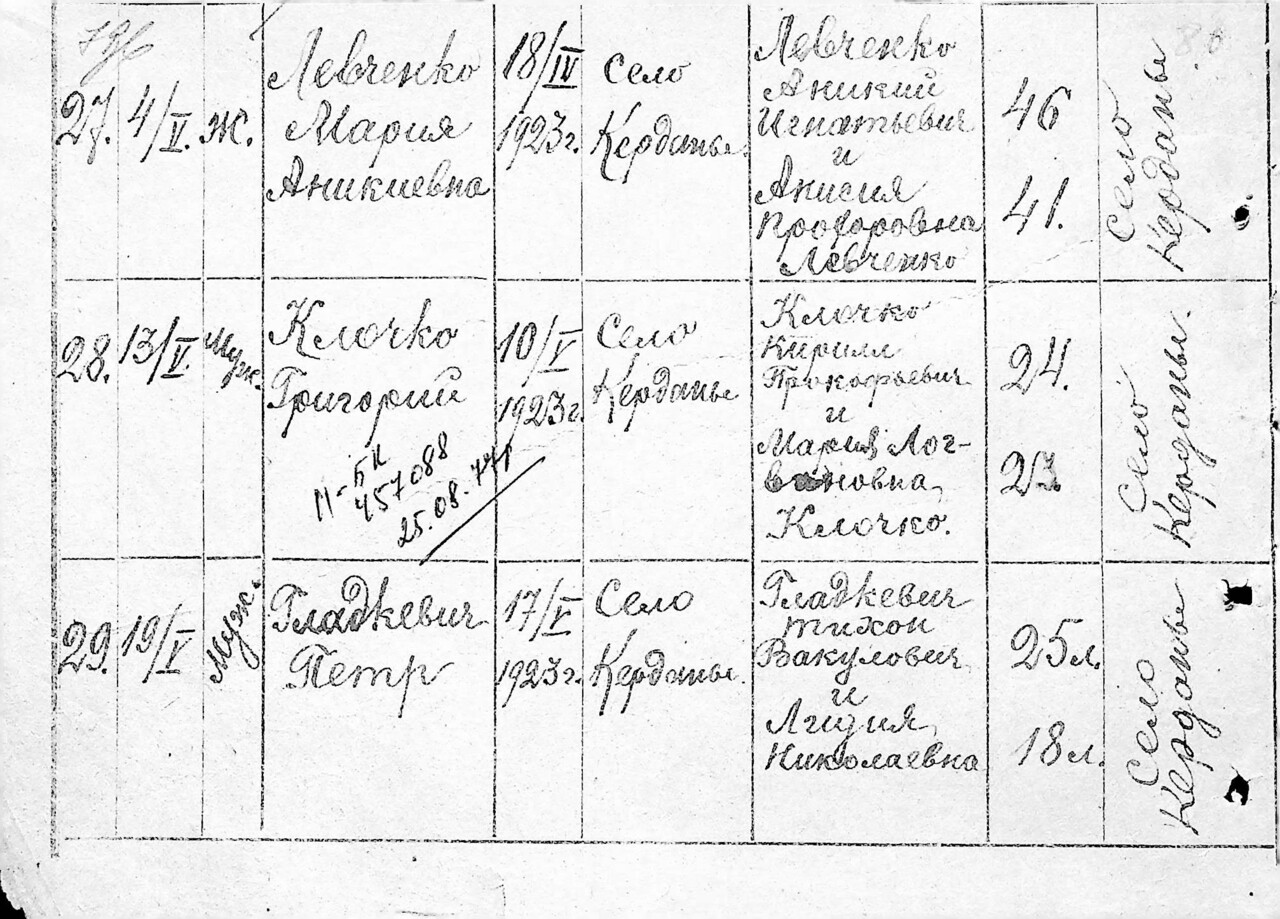 27.
4/V.
ж.
Левченко
Мария
Аникиевна
18/IV
1923г.
село
Керданье.
Левченко
Аникий
Игнатьевич
и
Анисия
Профоровна
Левченко
46
41.
Село
Керданье
28.
13/V.
Муж.
Клочко
Григорий
II-БК
457088
25.08.77г
10/V
1923г.
Село
Керданье
Клочко
Кирилл
Прокофьевич
и
Мария Лог-
виновна,
Клочко.
24.
23.
Село
Керданье.
29.
19/V
Муж.
Гладкевич
Петр
17/V
1923г.
Село
Керданье.
Гладкевич
Тихон
Вакулович
и
Лидия
Николаевна
25л.
18л.
Село
Керданье